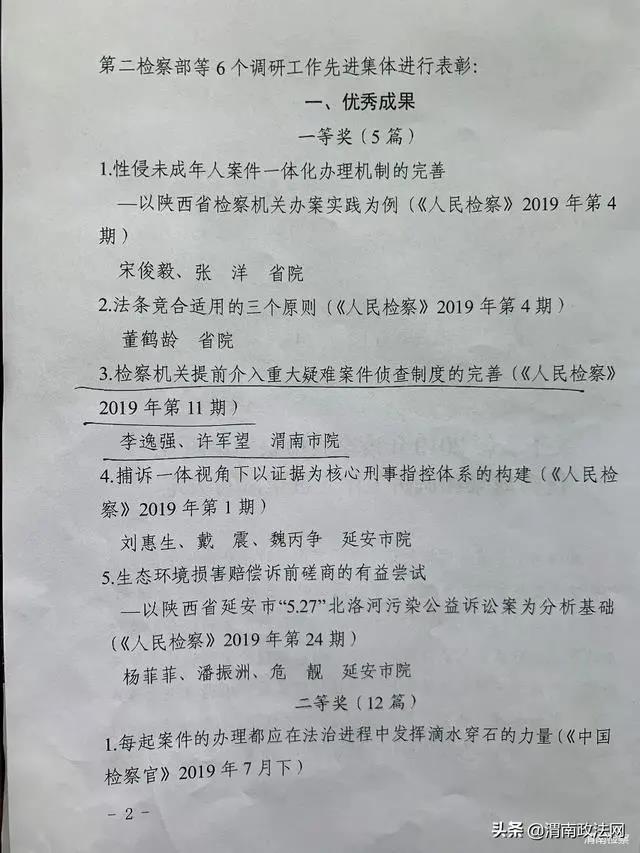 第二检察部等6个调研工作先进集体进行表彰:
一、优秀成果
一等奖(5篇)
1.性侵未成年人案件一体化办理机制的完善
—以陕西省检察机关办案实践为例(《人民检察》2019年第4
期)
宋俊毅、张 洋 省院
2.法条竞合适用的三个原则(《人民检察》2019年第4期)
董鹤龄 省院
3.检察机关提前介入重大疑难案件侦查制度的完善(《人民检察》
2019年第11期)
李逸强、许军望 渭南市院
4.捕诉一体视角下以证据为核心刑事指控体系的构建(《人民检
察》2019年第1期)
刘惠生、戴 震、魏丙争 延安市院
5.生态环境损害赔偿诉前磋商的有益尝试
—以陕西省延安市“5.27”北洛河污染公益诉讼案为分析基础
(《人民检察》2019年第24期)
杨菲菲、潘振洲、危 靓 延安市院
二等奖(12篇)
1.每起案件的办理都应在法治进程中发挥滴水穿石的力量(《中国
检察官》2019年7月下)
- 2 -
头条 @渭南政法网
渭南检察